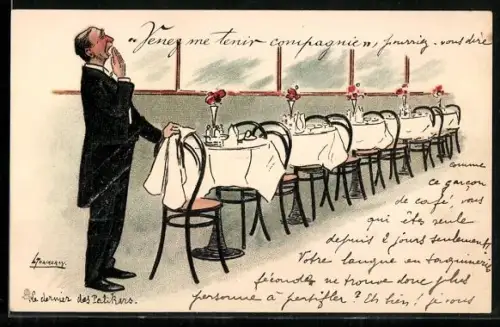 "Venez me tenir compagnie", pourriez-vous dire
comme
ce garçon
de café, vous
qui êtes seule
depuis 2 jours seulement,
Votre langue en
fécondez ne trouve donc plus
personne à persifler? Eh bien! je vous
Le dernier des Palikers.